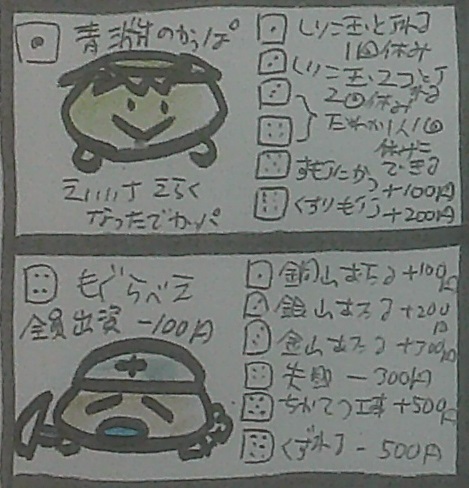 青沼のかっぱ
しりこ玉とられる
1回休み
しりこ玉2つとられる
2回休み
だれか1人1回
休みにできる
すもうにかつ
+100円
くすりもらう
+200円
えいいす えらく
なったでカッパ
もぐらべえ
全員出資 -100円
銅山ほる +100円
銀山ほる +200円
金山ほる +300円
失敗 -300円
ちかてつ工事 +500円
くずれる -500円